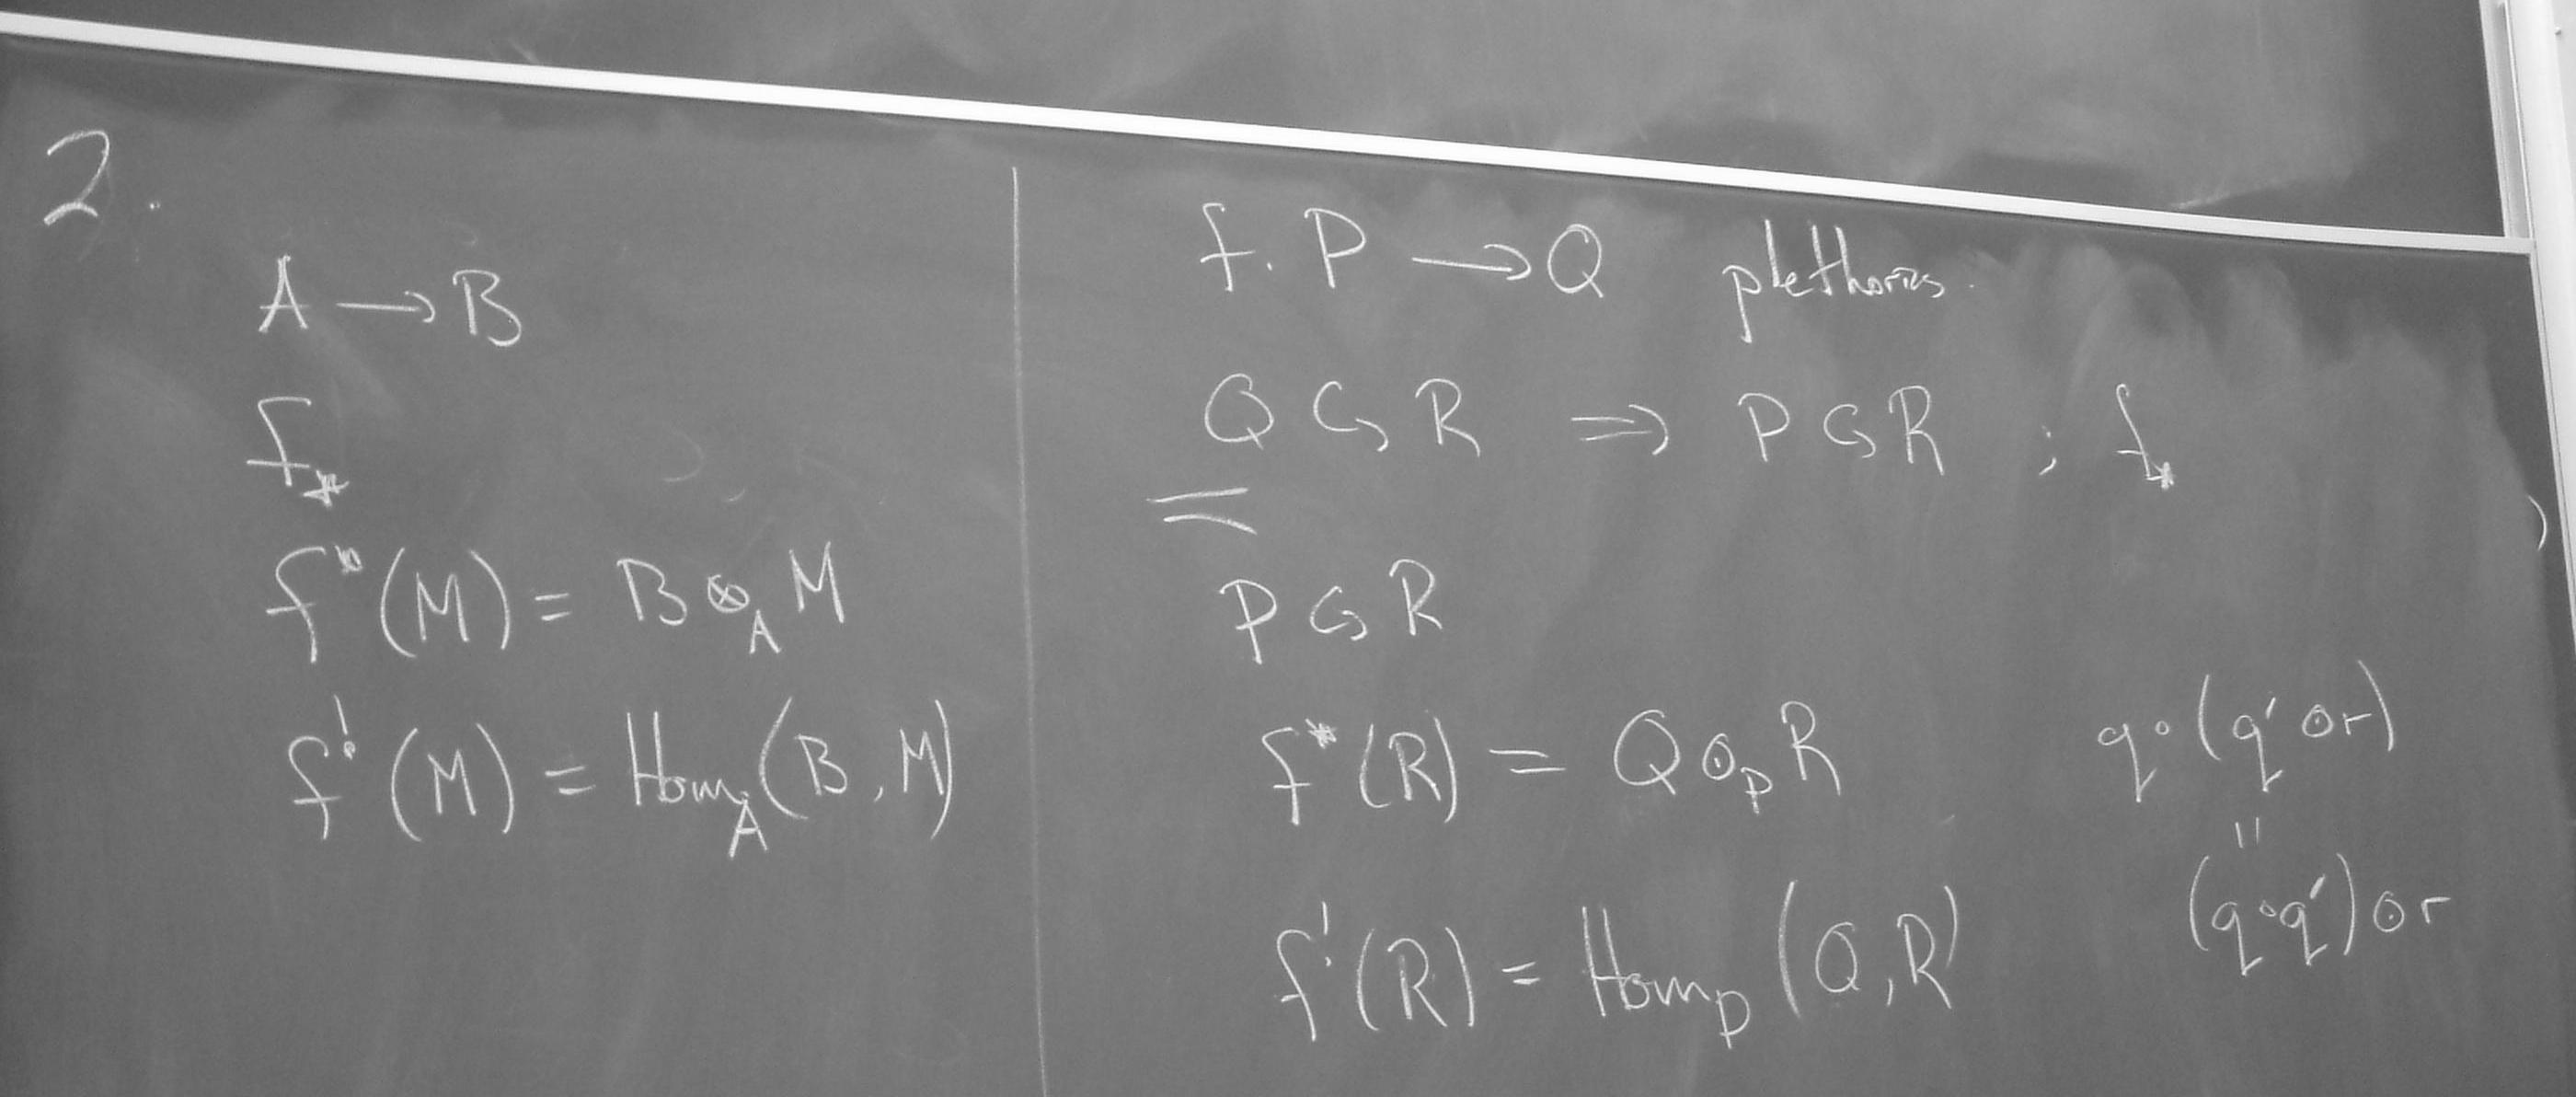 2.
A → B
f_*
f^*(M) = B ⊗_A M
f^!(M) = Hom_A(B, M)
f. P → Q plethories.
Q ↻ R ⇒ P ↻ R ; f_*
=
P ↻ R
f^*(R) = Q ⊙_P R
q∘(q'⊙r)
"
(q∘q')⊙r
f^!(R) = Hom_P(Q, R)